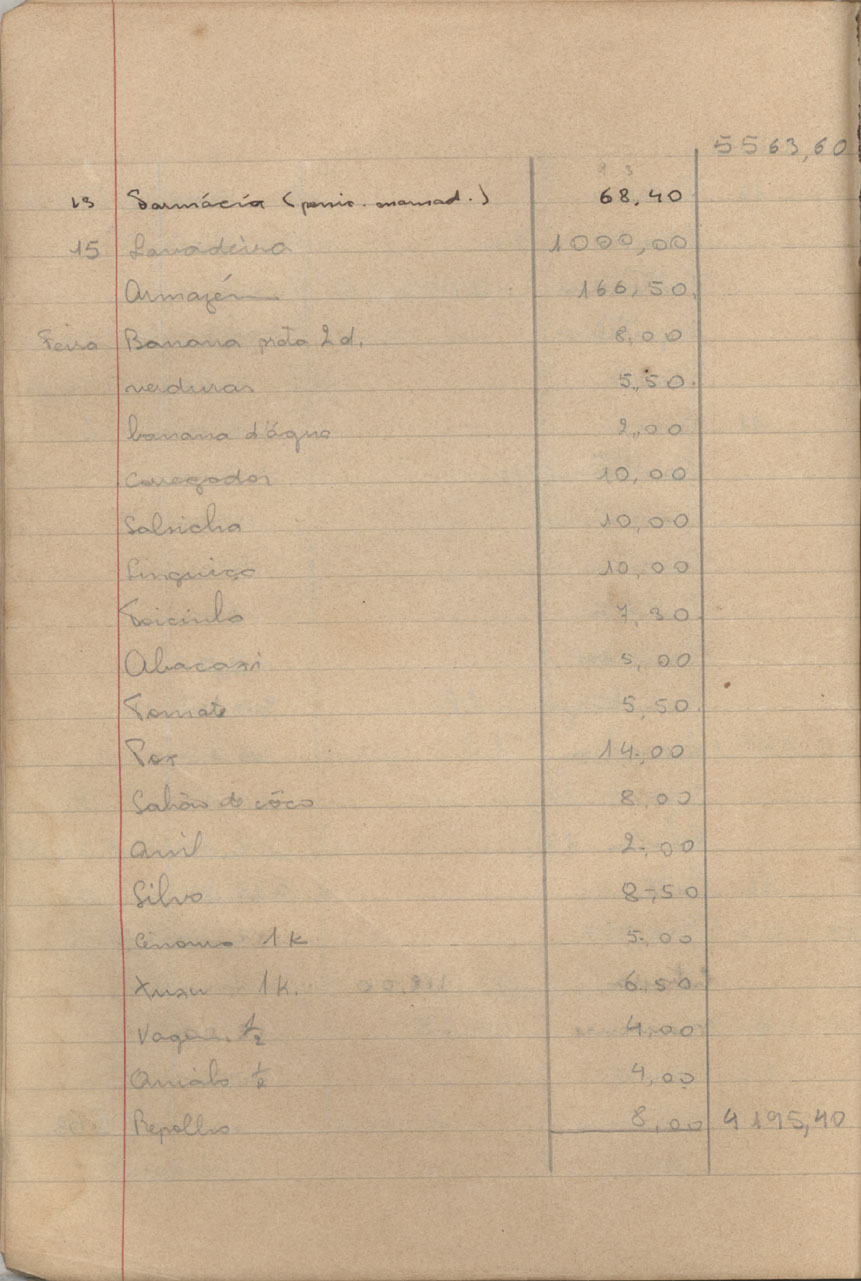 5563,60
13 Farmácia (penic. mamad.) 68,40
15 Lavadeira 1000,00
Armazém 166,50
Feira Banana prata 2 d. 8,00
verduras 5,50
banana d'água 2,00
Carregador 10,00
Salsicha 10,00
Linguiça 10,00
Toicinho 7,30
Abacaxi 5,00
Tomate 5,50
14,00
Sabão de côco 8,00
Anil 2,00
Silvo 8,50
Cenoura 1 k 5,00
Xuxu 1 k. 6,50
Vagem ½ 4,00
½ 4,00
Repolho 8,00 4195,40